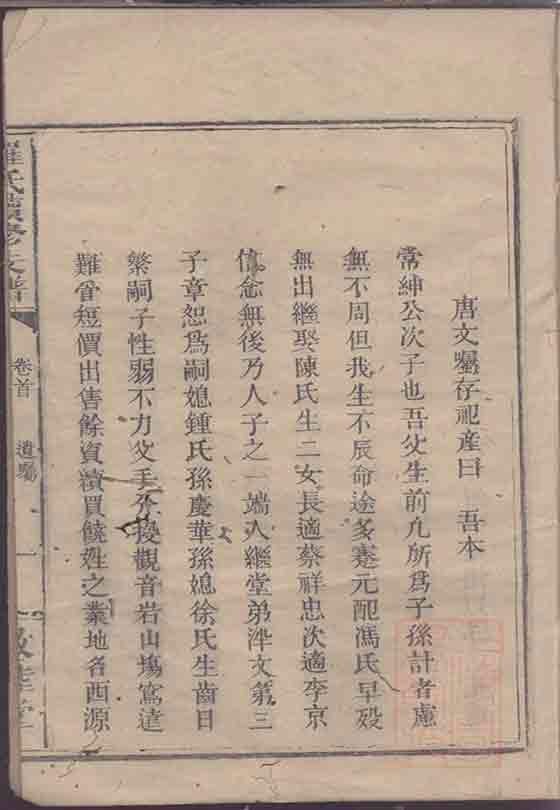 唐文囑存祀產曰 吾本
常紳公次子也吾父生前凡所爲子孫計者慮
無不周但我生不辰命途多蹇元配馮氏早歿
無出繼娶陳氏生二女長適蔡祥忠次適李京
信念無後乃人子之一端入繼堂弟泮文第三
子章恕爲嗣媳鍾氏孫慶華孫媳徐氏生齒日
繁嗣子性弱不力父手分撥觀音岩山塲窩遠
難管短價出售餘資續買饒姓之業地名西源
羅氏續修支譜
卷首 遺囑 一
堂